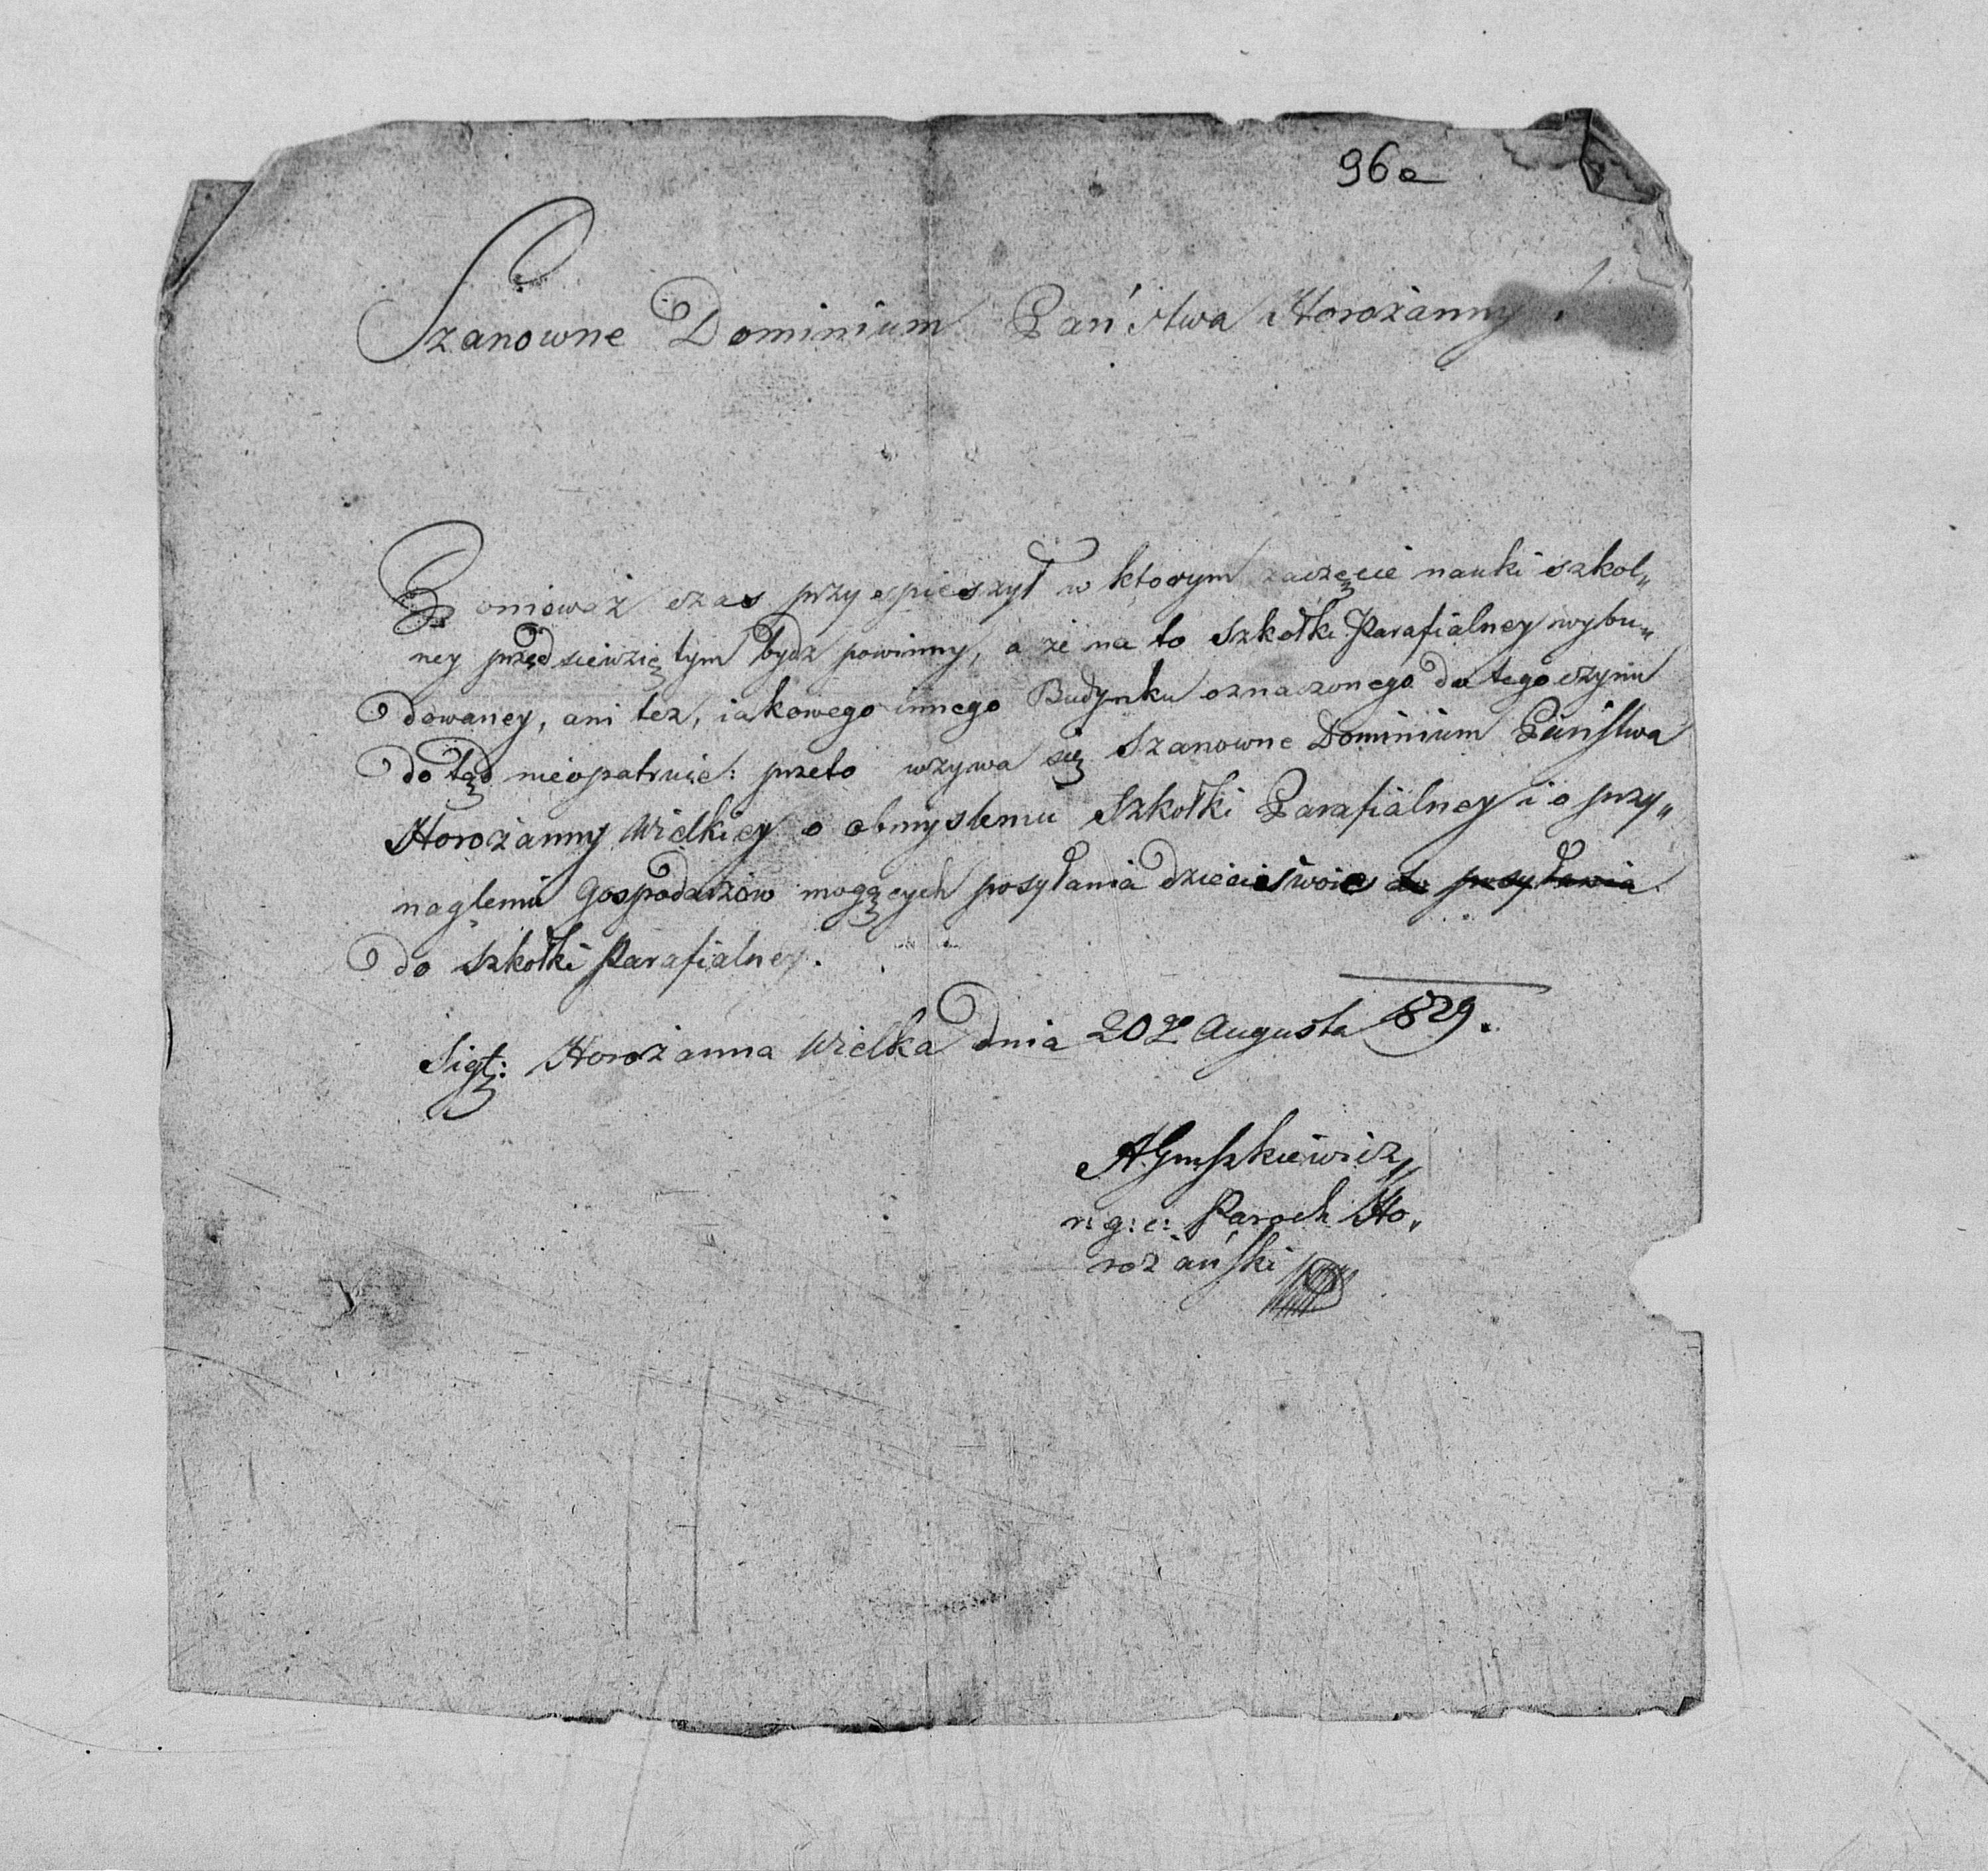 96a
Szanowne Dominium Państwa Horożanny !
Poniewaź czas przyspieszył w ktorym zaczęcie nauki szkol„
ney przedsiewziętym bydz powinny, a że na to Szkołki Parafialney wybu„
dowaney, ani tez, iakowego innego Budynku oznaczonego do tego czynu
do tąd nieopatruie: przeto wzywa się Szanowne Dominium Państwa
Horożanny Wielkiey o obmysleniu Szkołki Parafialney i o przy„
nagleniu Gospodarzow mogących posyłania dzieci swoie do posyłania
do Szkołki Parafialney.
Sigt: Horożanna Wielka dnia 20go Augusta 829.
r: g: c: Paroch Ho„
rożański